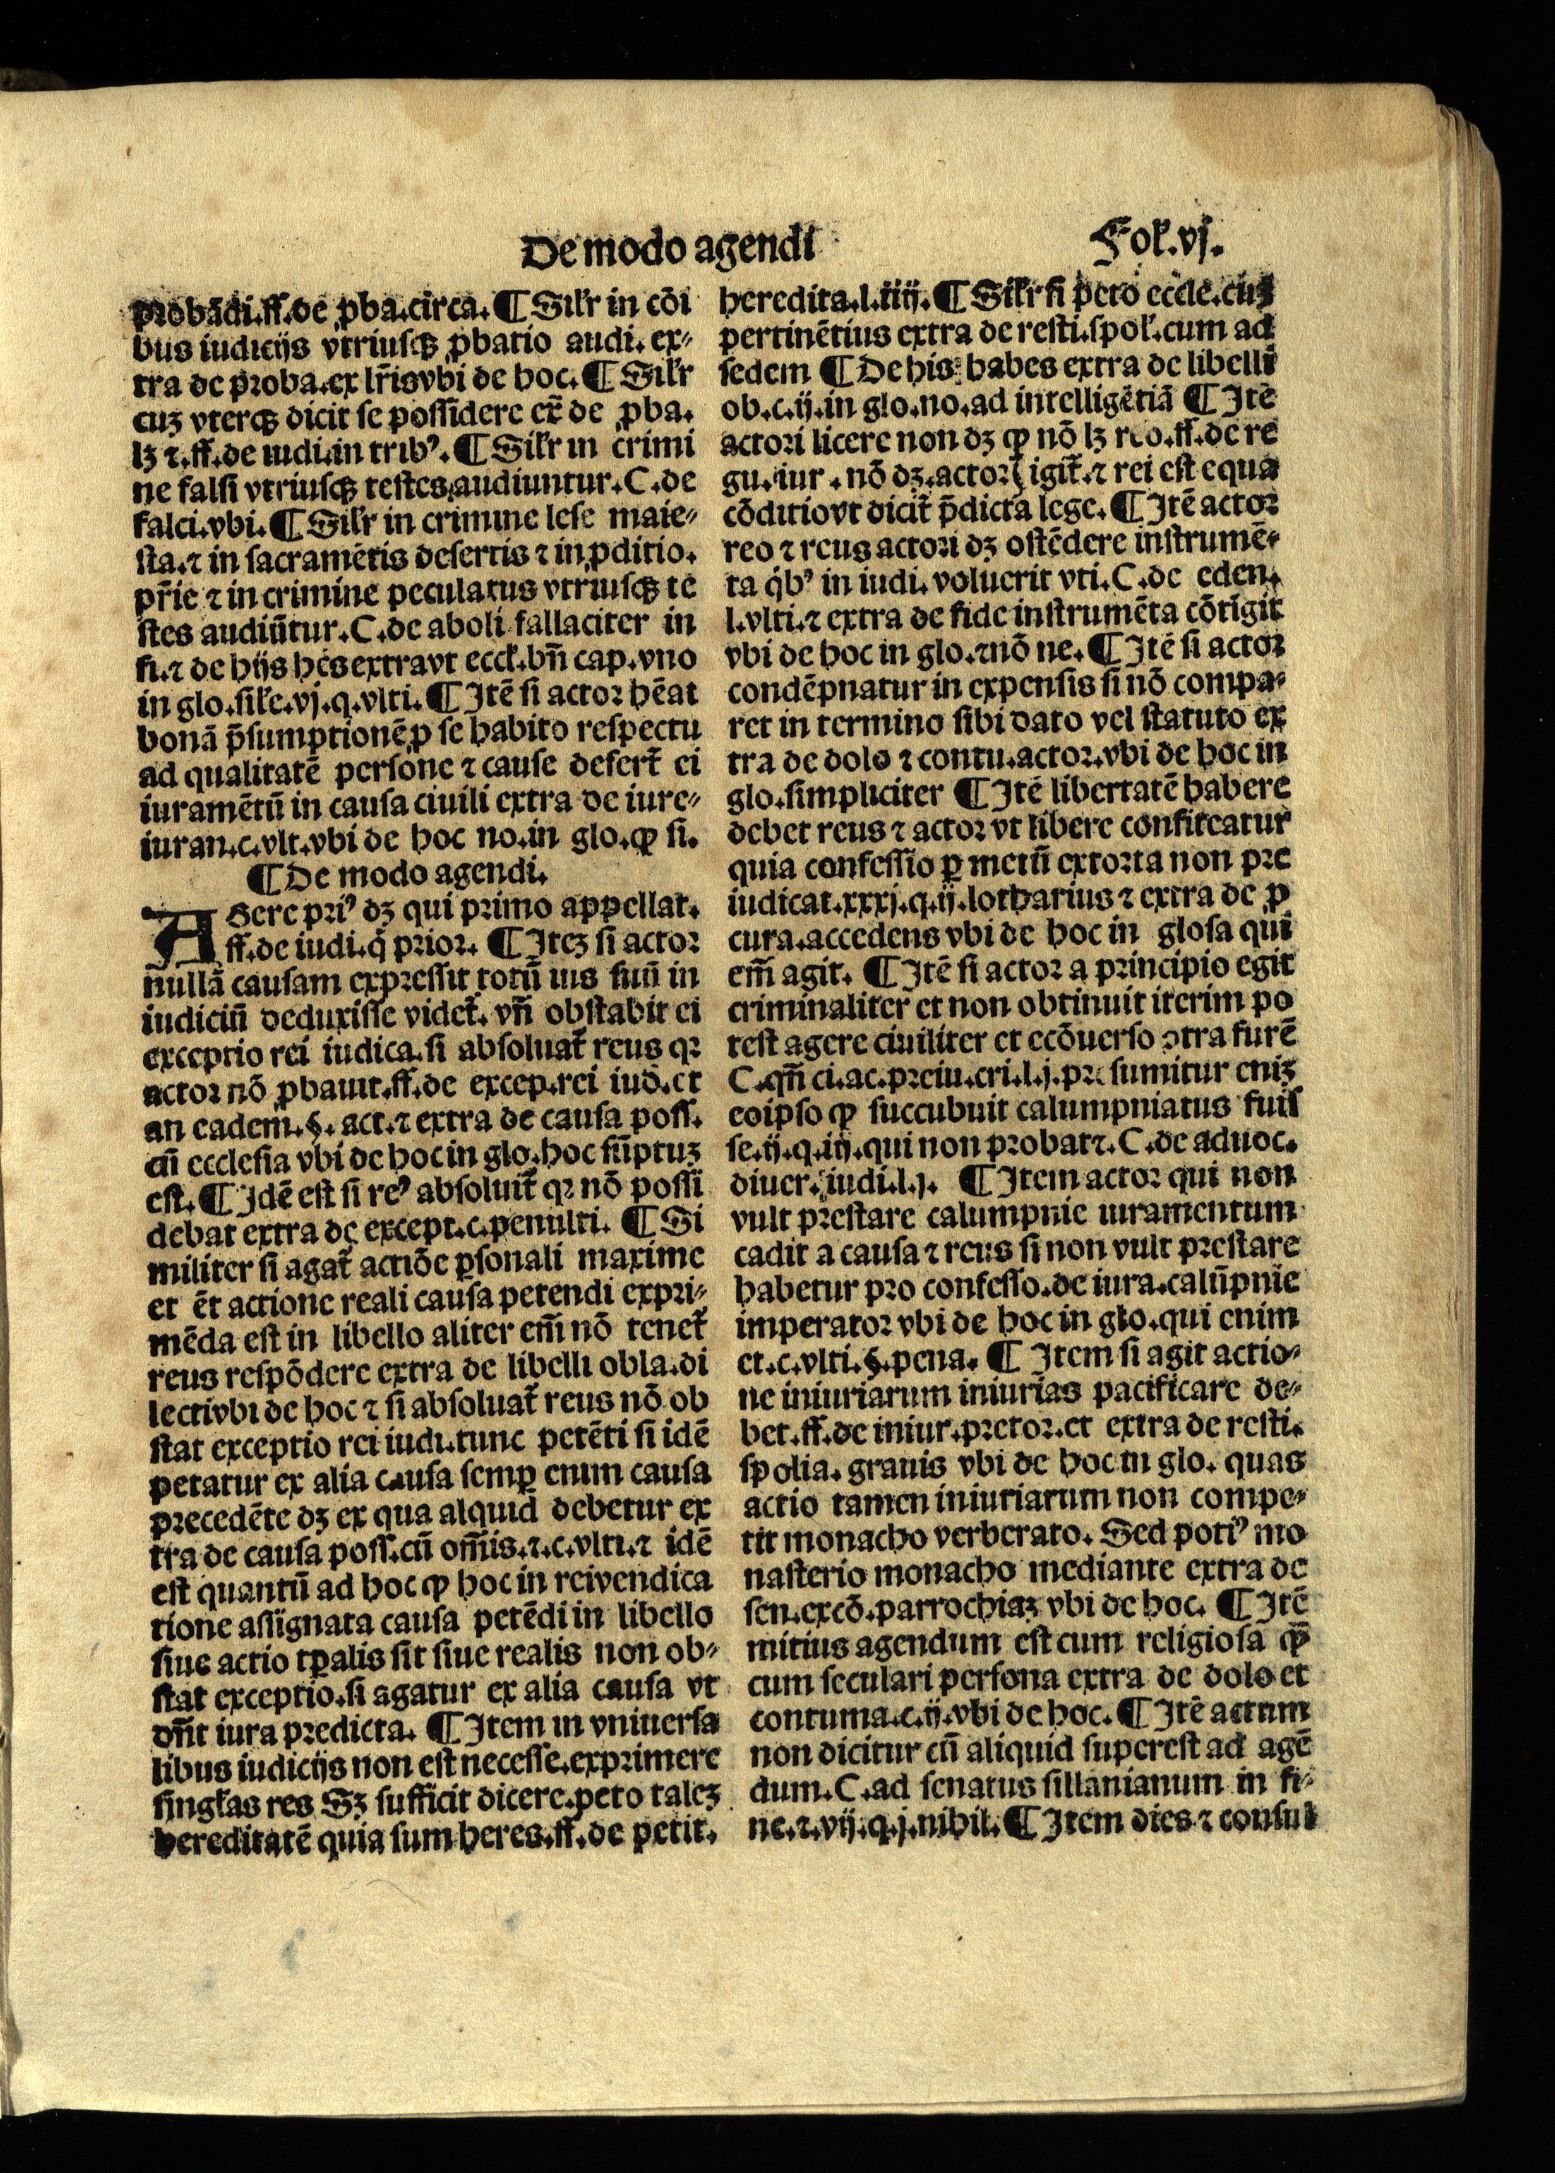 De modo agendi
Fol̄.vj.
probādi.ff.de ꝓba.circa. ¶ Sil̄r in cōi
bus iudicijs vtriusqꝫ ꝓbatio audi. ex⸗
tra de proba.ex lr̄is vbi de hoc. ¶ Sil̄r
cuꝫ vterqꝫ dicit se possidere ex̄ de ꝓba.
lꝫ ⁊.ff.de iudi.in tribꝰ. ¶ Sil̄r in crimi
ne falsi vtriusqꝫ testes audiuntur. C. de
falci.vbi. ¶ Sil̄r in crimine lese maie⸗
sta.⁊ in sacramētis desertis ⁊ in ꝓditio.
pr̄ie ⁊ in crimine peculatus vtriusqꝫ te
stes audiūtur. C. de aboli fallaciter in
fi.⁊ de hijs hēs extra vt eccl̄.bn̄ cap.vno
in glo.sil̄e.vj.q.vlti. ¶ Itē si actor hēat
bonā p̄sumptionē ꝓ se habito respectu
ad qualitatē persone ⁊ cause defert᷑ ei
iuramētū in causa ciuili extra de iure⸗
iuran.c.vlt.vbi de hoc no.in glo.ꝙ si.
¶ De modo agendi.
AGere priꝰ dꝫ qui primo appellat.
ff.de iudi.q̇ prior. ¶ Iteꝫ si actor
nullā causam expressit totū ius suū in
iudiciū deduxisse videt᷑. vn̄ obstabit ei
exceptio rei iudica.si absoluat᷑ reus qꝛ
actor nō ꝓbauit.ff.de excep.rei iud̄.et
an eadem.§. act.⁊ extra de causa poss.
cū ecclesia vbi de hoc in glo.hoc sūptuꝫ
est. ¶ Idē est si reꝰ absoluit᷑ qꝛ nō possi
debat extra de except.c.penulti. ¶ Si
militer si agat᷑ actiōe ꝑsonali maxime
et ēt actione reali causa petendi expri⸗
mēda est in libello aliter em̄ nō tenet᷑
reus respōdere extra de libelli obla.di
lecti vbi de hoc ⁊ si absoluat᷑ reus nō ob
stat exceptio rei iudi.tunc petēti si idē
petatur ex alia causa semꝑ enim causa
precedēte dꝫ ex qua alquid debetur ex
tra de causa poss.cū om̄is.⁊.c.vlti.⁊ idē
est quantū ad hoc ꝙ hoc in rei vendica
tione assignata causa petēdi in libello
siue actio tꝑalis sit siue realis non ob⸗
stat exceptio.si agatur ex alia causa vt
dn̄t iura predicta. ¶ Item in vniuersa
libus iudicijs non est necesse.exprimere
singl̄as res Sꝫ sufficit dicere.peto taleꝫ
hereditatē quia sum heres.ff.de petit.
heredita.l.iiij. ¶ Sil̄r si peto eccl̄e.cuꝫ
pertinētijs extra de resti.spol̄.cum ad
sedem ¶ De his habes extra de libelli
ob.c.ij.in glo.no.ad intelligētiā ¶ Itē
actori licere non dꝫ ꝙ nō lꝫ reo.ff.de re
gu.iur.nō dꝫ.actor igit᷑.⁊ rei est equa
cōditio vt dicit᷑ p̄dicta lege. ¶ Itē actor
reo ⁊ reus actori dꝫ ostēdere instrumē⸗
ta q̇bꝰ in iudi.voluerit vti. C. de eden.
l.vlti.⁊ extra de fide instrumēta cōtigit
vbi de hoc in glo.⁊ nō ne. ¶ Itē si actor
condēpnatur in expensis si nō compa⸗
ret in termino sibi dato vel statuto ex
tra de dolo ⁊ contu.actor.vbi de hoc in
glo.simpliciter ¶ Itē libertatē habere
debet reus ⁊ actor vt libere confiteatur
quia confessio ꝑ metū extorta non pre
iudicat.xxxj.q.ij.lotharius ⁊ extra de ꝓ
cura.accedens vbi de hoc in glosa qui
em̄ agit. ¶ Itē si actor a principio egit
criminaliter et non obtinuit iterim po
test agere ciuiliter et ecōuerso ꝯtra furē
C.qn̄ ci.ac.preiu.cri.l.j.presumitur eniꝫ
eoipso ꝙ succubuit calumpniatus fuis
se.ij.q.iij.qui non probat⁊. C. de aduoc.
diuer.iudi.l.j. ¶ Item actor qui non
vult prestare calumpnie iuramentum
cadit a causa ⁊ reus si non vult prestare
habetur pro confesso.de iura.calūpnie
imperator vbi de hoc in glo.qui enim
et.c.vlti.§.pena. ¶ Item si agit actio⸗
ne iniuriarum iniurias pacificare de⸗
bet.ff.de iniur.pretor.et extra de resti.
spolia.grauis vbi de hoc in glo. quas
actio tamen iniuriarum non compe⸗
tit monacho verberato. Sed potiꝰ mo
nasterio monacho mediante extra de
sen.excō.parrochiaꝫ vbi de hoc. ¶ Itē
mitius agendum est cum religiosa ꝙ̄
cum seculari persona extra de dolo et
contuma.c.ij.vbi de hoc. ¶ Itē actum
non dicitur cū aliquid superest ad agē
dum. C. ad senatus sillanianum in fi⸗
ne.⁊.vij.q.j.nihil. ¶ Item dies ⁊ consul